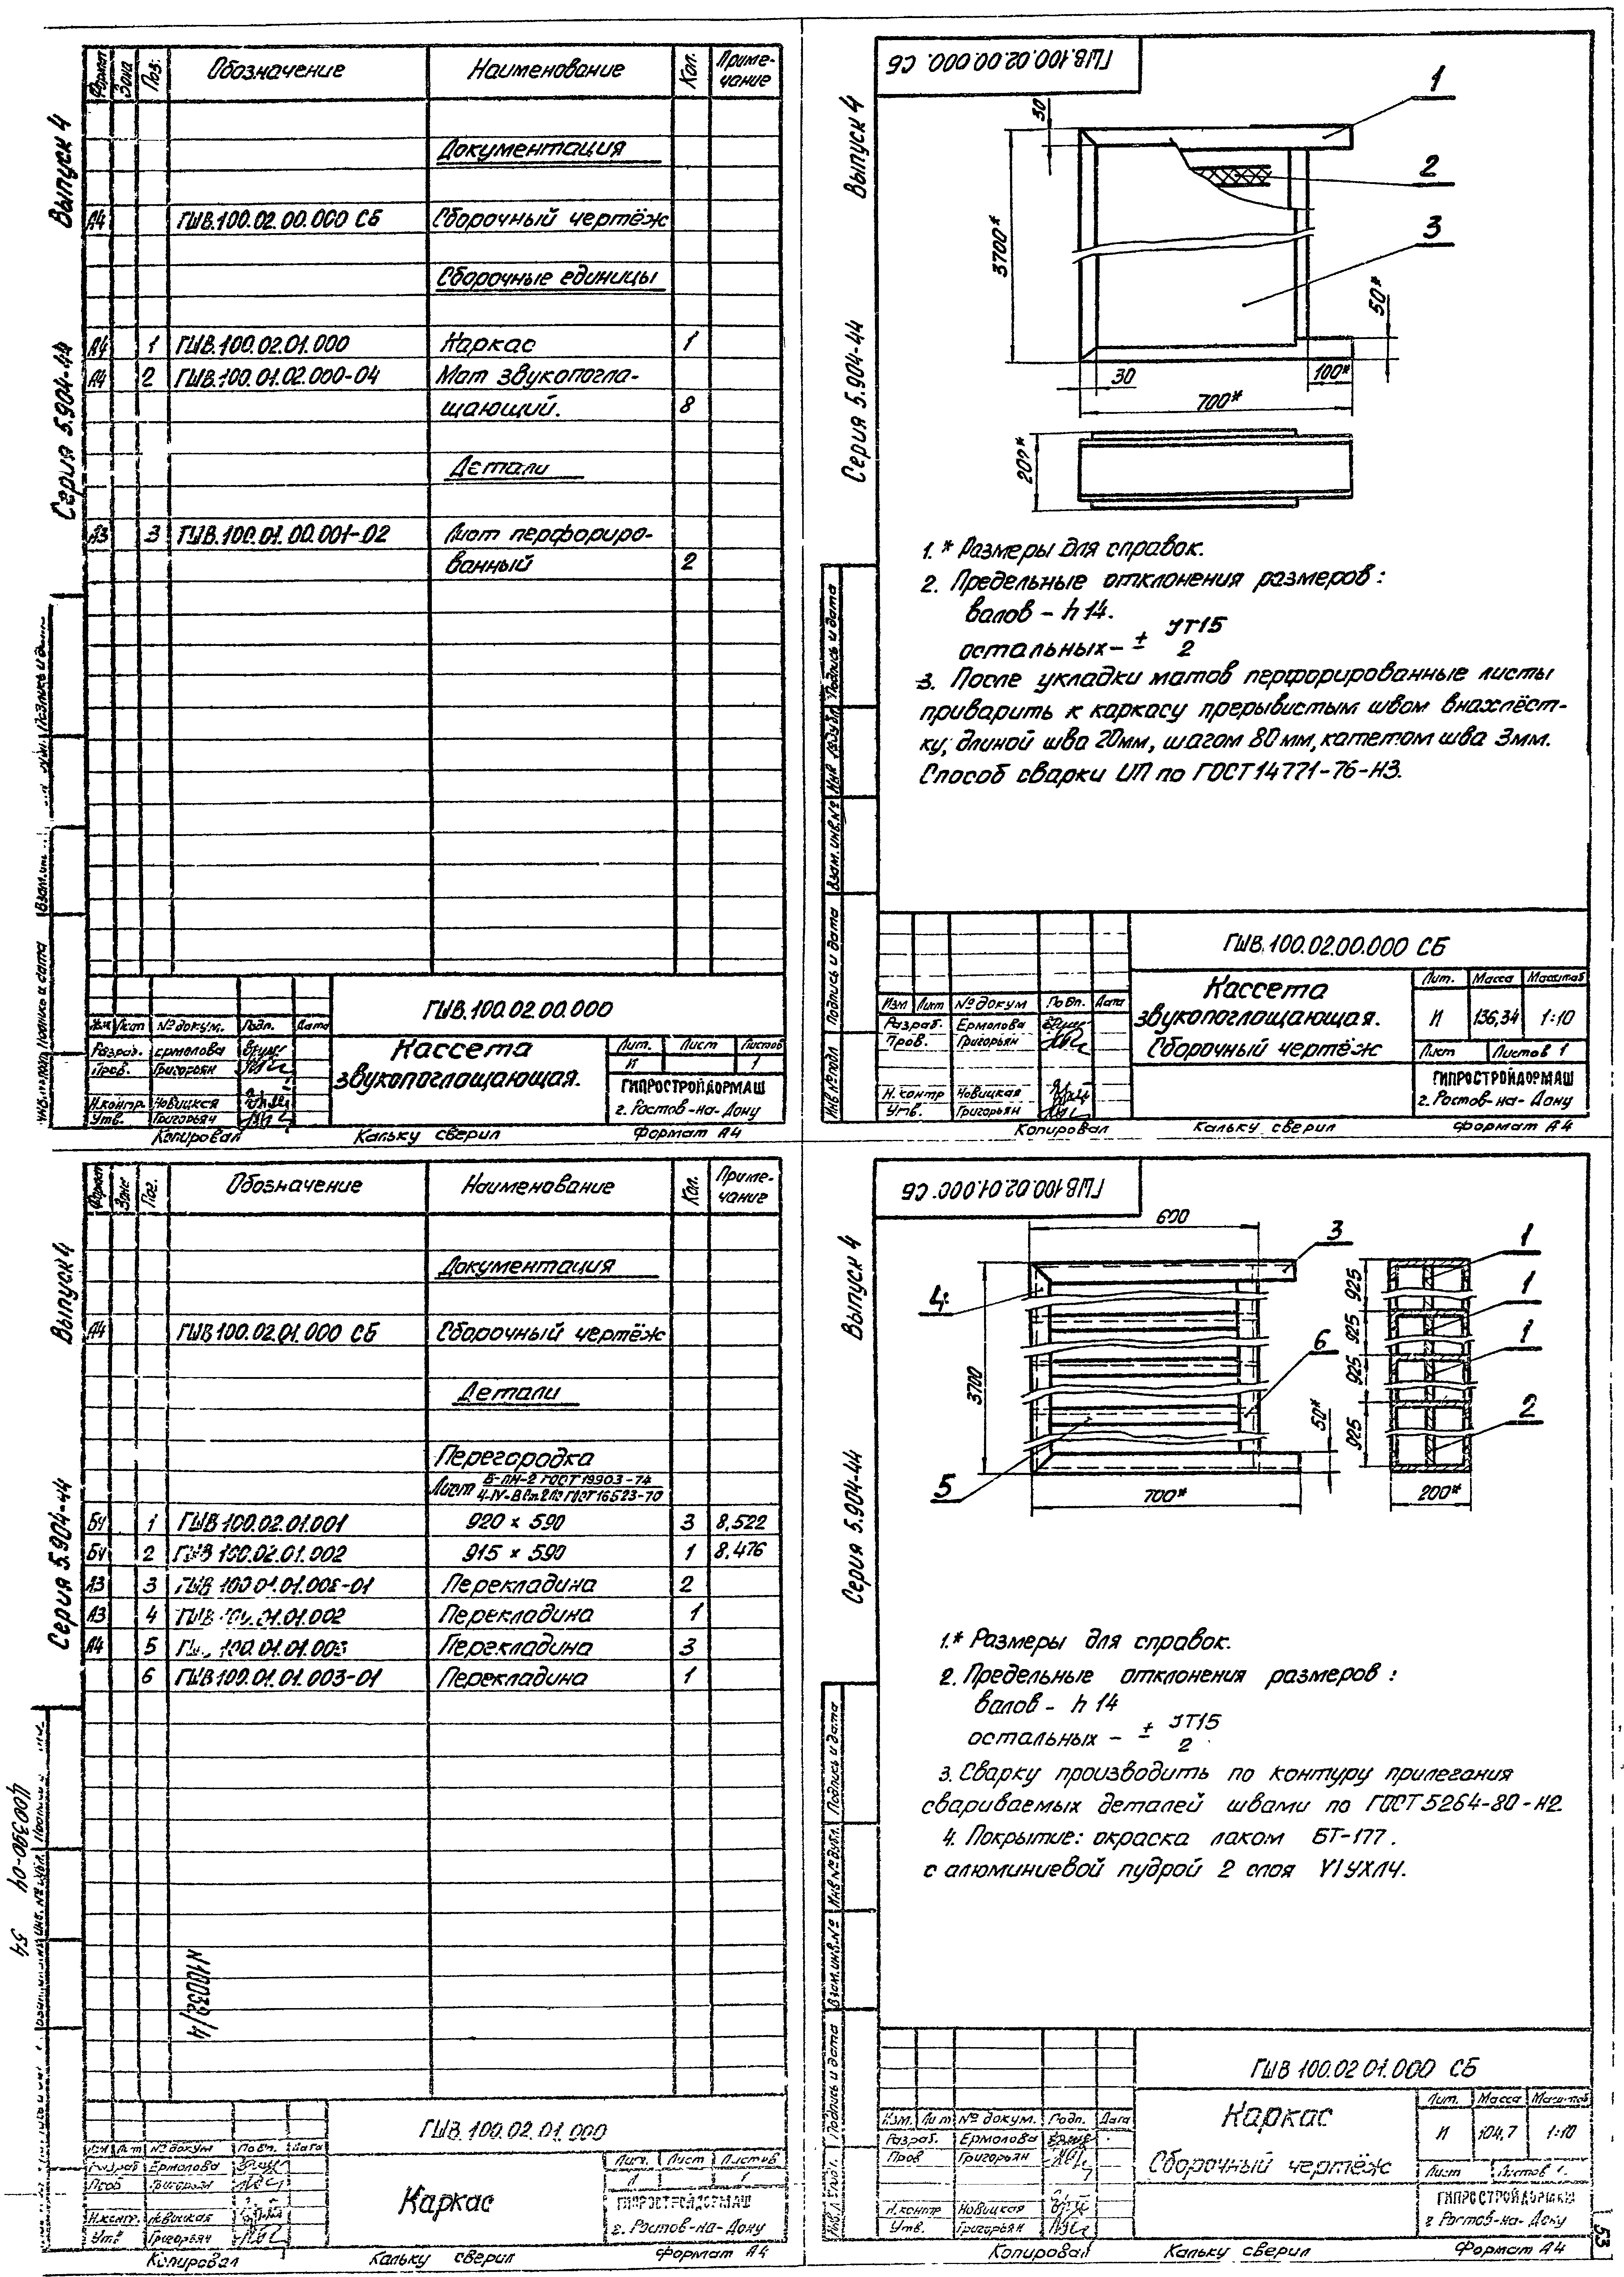 Выпуск 4
Серия 5.904-44
Формат Зона Поз. Обозначение Наименование Кол. Приме-
чание
Документация
А4 ГШВ.100.02.00.000 СБ Сборочный чертёж
Сборочные единицы
А4 1 ГШВ.100.02.01.000 Каркас 1
А4 2 ГШВ.100.01.02.000-04 Мат звукопогла-
щающий. 8
Детали
А3 3 ГШВ.100.01.00.001-02 Лист перфориро-
ванный 2
ГШВ.100.02.00.000
Изм Лист № докум. Подп. Дата
Разраб. Ермолова
Пров. Григорьян
Н.контр. Новицкая
Утв. Григорьян
Кассета
звукопоглощающая.
Лит. Лист Листов
И 1
ГИПРОСТРОЙДОРМАШ
г. Ростов-на-Дону
Копировал Кальку сверил Формат А4
Выпуск 4
Серия 5.904-44
ГШВ.100.02.00.000. СБ
1
2
3
30
3700*
50*
30
100*
700*
1.* Размеры для справок.
2. Предельные отклонения размеров:
валов - h 14.
остальных - ± JT15
2
3. После укладки матов перфорированные листы
приварить к каркасу прерывистым швом внахлёст-
ку, длиной шва 20мм, шагом 80 мм, катетом шва 3мм.
Способ сварки ИП по ГОСТ 14771-76-Н3.
Инв № подл Подпись и дата Взам.инв.№ Инв №дубл Подпись и дата
ГШВ.100.02.00.000 СБ
Изм Лист № докум Подп. Дата
Разраб. Ермолова
Пров. Григорьян
Н.контр Новицкая
Утв. Григорьян
Кассета
звукопоглощающая.
Сборочный чертёж
Лит. Масса Масштаб
И 136,34 1:10
Лист Листов 1
ГИПРОСТРОЙДОРМАШ
г. Ростов-на-Дону
Копировал Кальку сверил Формат А4
Выпуск 4
Серия 5.904-44
Формат Зона Поз. Обозначение Наименование Кол. Приме-
чание
Документация
А4 ГШВ 100.02.01.000 СБ Сборочный чертёж
Детали
Перегородка
Лист Б-ПН-2 ГОСТ 19903-74
4-IV-В Ст.2пс ГОСТ 16523-70
БЧ 1 ГШВ 100.02.01.001 920 × 590 3 8,522
БЧ 2 ГШВ 100.02.01.002 915 × 590 1 8,476
А3 3 Перекладина 2
А3 4 Перекладина 1
А4 5 Перекладина 3
6 ГШВ 100.01.01.003-01 Перекладина 1
Ц00390-04 54
N10032/4
ГШВ.100.02.01.000
Изм Лист № докум Подп. Дата
Разраб Ермолова
Проб Григорьян
Н.контр. Новицкая
Утв Григорьян
Каркас
Лит. Лист Листов
И 1
ГИПРОСТРОЙДОРМАШ
г. Ростов-на-Дону
Копировал Кальку сверил Формат А4
Выпуск 4
Серия 5.904-44
ГШВ 100.02.01.000. СБ
600
3
4
6
5
3700
50*
700*
925
925
925
925
1
1
1
2
200*
1.* Размеры для справок.
2. Предельные отклонения размеров:
валов - h 14
остальных - ± JT15
2
3. Сварку производить по контуру прилегания
свариваемых деталей швами по ГОСТ 5264-80-Н2
4. Покрытие: окраска лаком БТ-177.
с алюминиевой пудрой 2 слоя VI УХЛ4.
Подпись и дата Взам.инв.№ Инв № дубл. Подпись и дата
ГШВ 100.02 01.000 СБ
Изм. Лист № докум. Подп. Дата
Разраб. Ермолова
Пров Григорьян
Н.контр Новицкая
Утв. Григорьян
Каркас
Сборочный чертёж
Лит. Масса Масштаб
И 104,7 1:10
Лист Листов 1.
ГИПРОСТРОЙДОРМАШ
г Ростов-на-Дону
Копировал Кальку сверил Формат А4
53